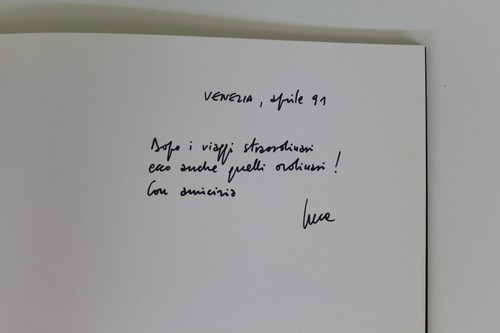 VENEZIA, aprile 91
Dopo i viaggi straordinari
ecco anche quelli ordinari!
Con amicizia
Luca